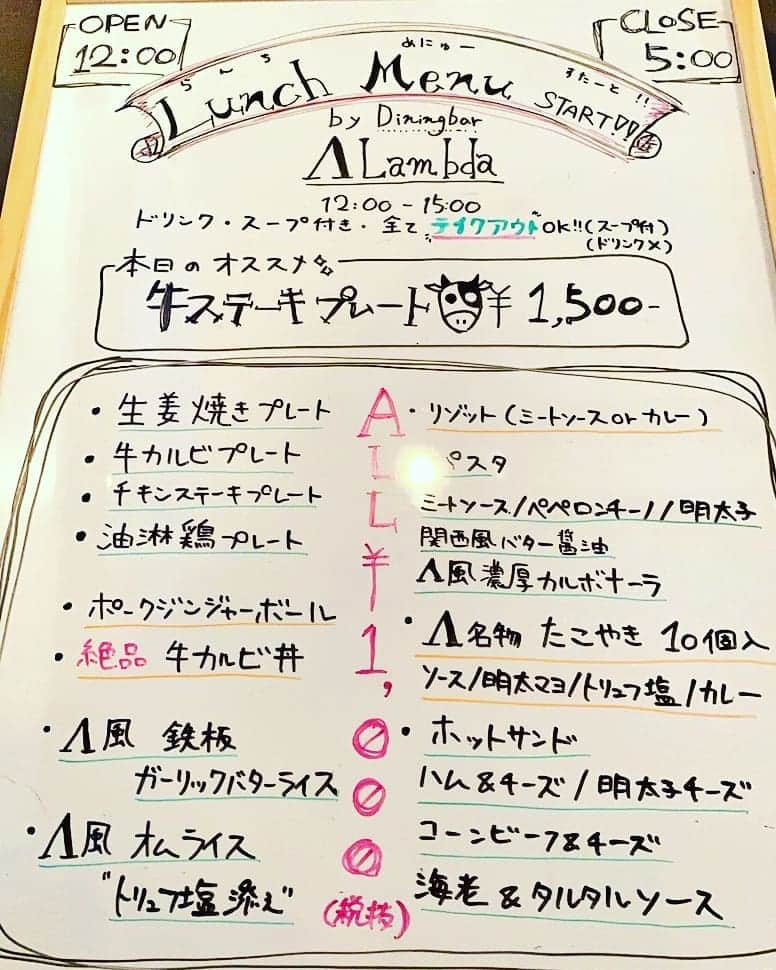 OPEN
12:00
CLOSE
5:00
らんち めにゅー すたーと!!
Lunch Menu START!!
by Diningbar
Λ Lambda
12:00 - 15:00
ドリンク・スープ付き・全て "テイクアウト" OK!!(スープ付)
(ドリンク×)
本日のオススメ
牛ステーキプレート ¥1,500-
ALL ¥1,000
(税抜)
・生姜焼きプレート
・牛カルビプレート
・チキンステーキプレート
・油淋鶏プレート
・ポークジンジャーボール
・絶品 牛カルビ丼
・Λ風 鉄板
ガーリックバターライス
・Λ風 オムライス
"トリュフ塩添え"
・リゾット(ミートソースorカレー)
パスタ
ミートソース/ペペロンチーノ/明太子
関西風バター醤油
Λ風濃厚カルボナーラ
・Λ名物 たこやき 10個入
ソース/明太マヨ/トリュフ塩/カレー
・ホットサンド
ハム&チーズ/明太子チーズ
コーンビーフ&チーズ
海老&タルタルソース